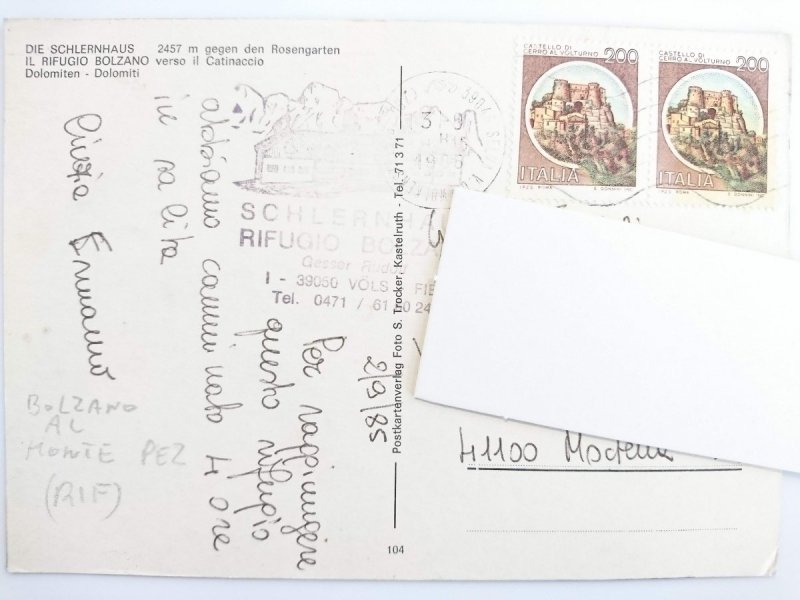 DIE SCHLERNHAUS 2457 m gegen den Rosengarten
IL RIFUGIO BOLZANO verso il Catinaccio
Dolomiten - Dolomiti
2/9/85
Per raggiungere
questo rifugio
abbiamo camminato 4 ore
in salita
Cinzia Ermanno
SCHLERNH
RIFUGIO BOLZA
Gasser
I - 39050 VÖLS FIE
Tel. 0471 / 61 0 24
BOLZANO
AL
MONTE PEZ
(RIF)
Postkartenverlag Foto S. Trocker, Kastelruth - Tel. 71371
104
CASTELLO DI
CERRO AL VOLTURNO
200
ITALIA
CASTELLO DI
CERRO AL VOLTURNO
200
ITALIA
41100 Modena